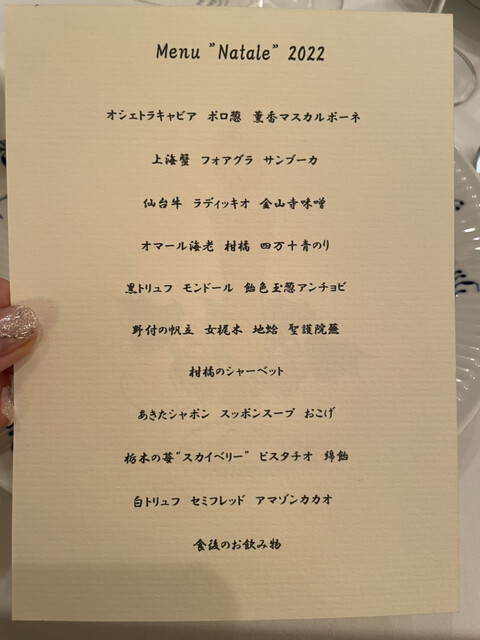 Menu "Natale" 2022
オシェトラキャビア ポロ葱 薫香マスカルポーネ
上海蟹 フォアグラ サンブーカ
仙台牛 ラディッキオ 金山寺味噌
オマール海老 柑橘 四万十青のり
黒トリュフ モンドール 飴色玉葱アンチョビ
野付の帆立 女梶木 地蛤 聖護院蕪
柑橘のシャーベット
あきたシャポン スッポンスープ おこげ
栃木の苺"スカイベリー" ピスタチオ 綿飴
白トリュフ セミフレッド アマゾンカカオ
食後のお飲み物